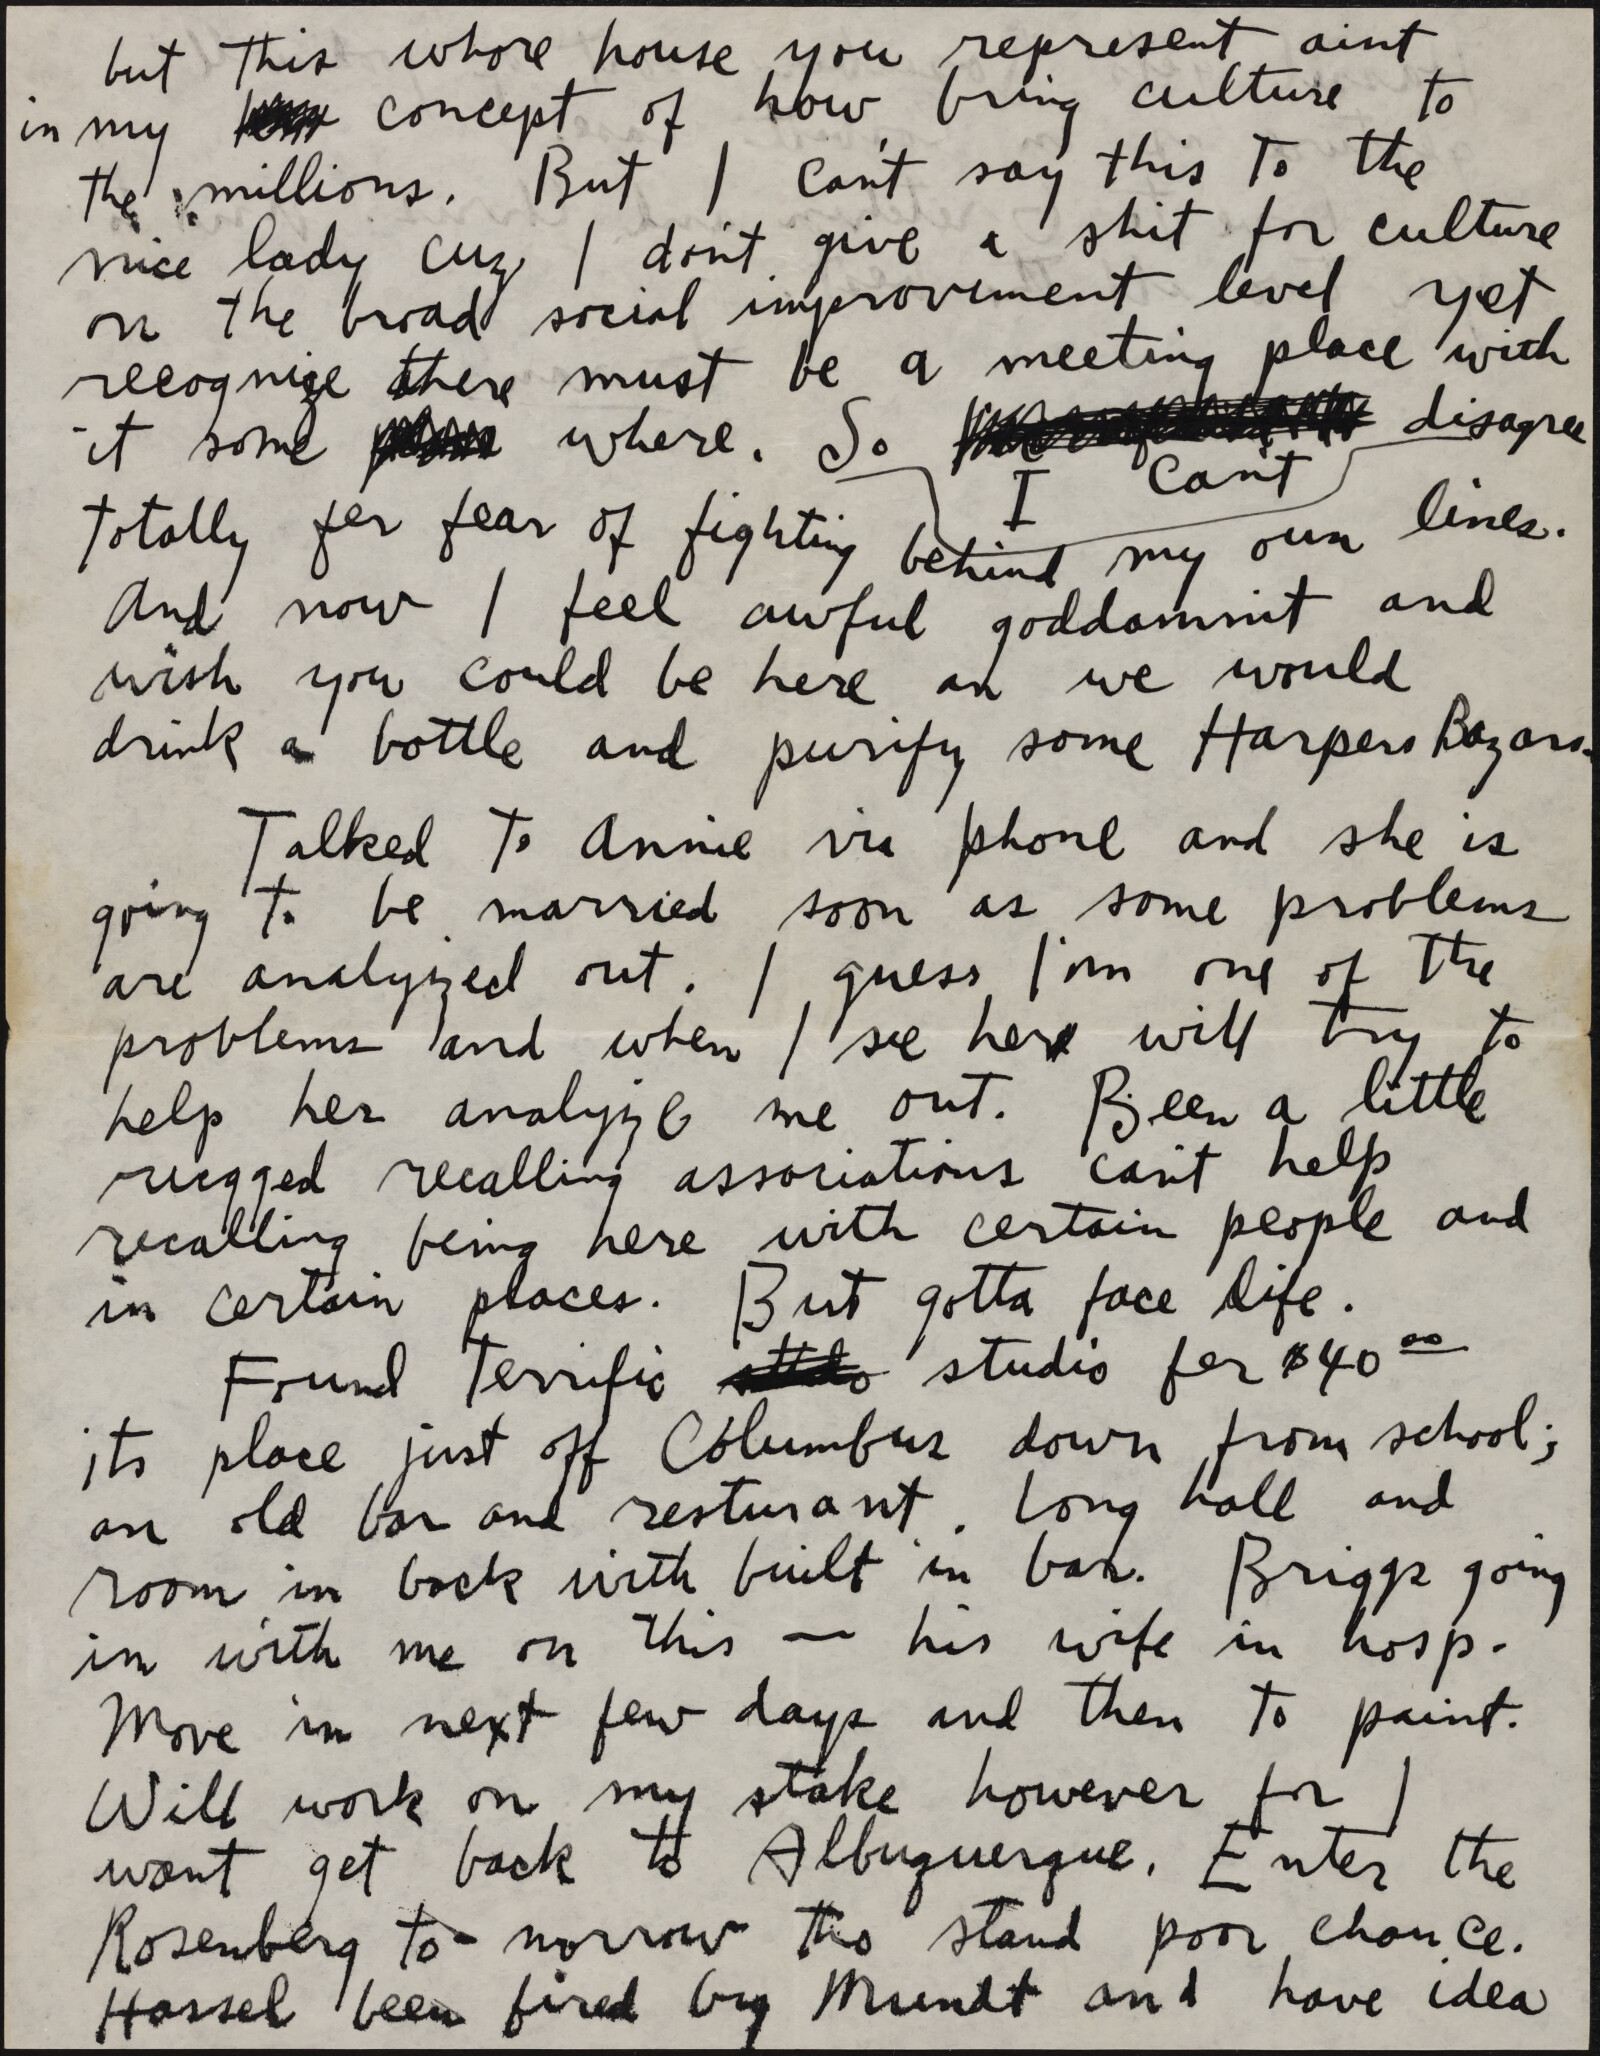 but this whore house you represent aint
in my concept of how bring culture to
the millions. But I can't say this to the
nice lady cuz I don't give a shit for culture
on the broad social improvement level yet
recognize there must be a meeting place with
it some where. So disagree
I can't
totally fer fear of fighting behind my own lines.
And now I feel awful goddamnit and
wish you could be here an we would
drink a bottle and purify some Harpers Bazars.
Talked to Annie via phone and she is
going to be married soon as some problems
are analyzed out. I guess I'm one of the
problems and when I see her will try to
help her analyze me out. Been a little
rugged recalling associations can't help
recalling being here with certain people and
in certain places. But gotta face life.
Found terrific studio fer $40 00
its place just off Columbus down from school;
an old bar and resturant. Long hall and
room in back with built in bar. Briggs going
in with me on this — his wife in hosp.
Move in next few days and then to paint.
Will work on my stake however for I
want get back to Albuquerque. Enter the
Rosenberg to-morrow tho stand poor chance.
Hassel been fired by Mundt and have idea